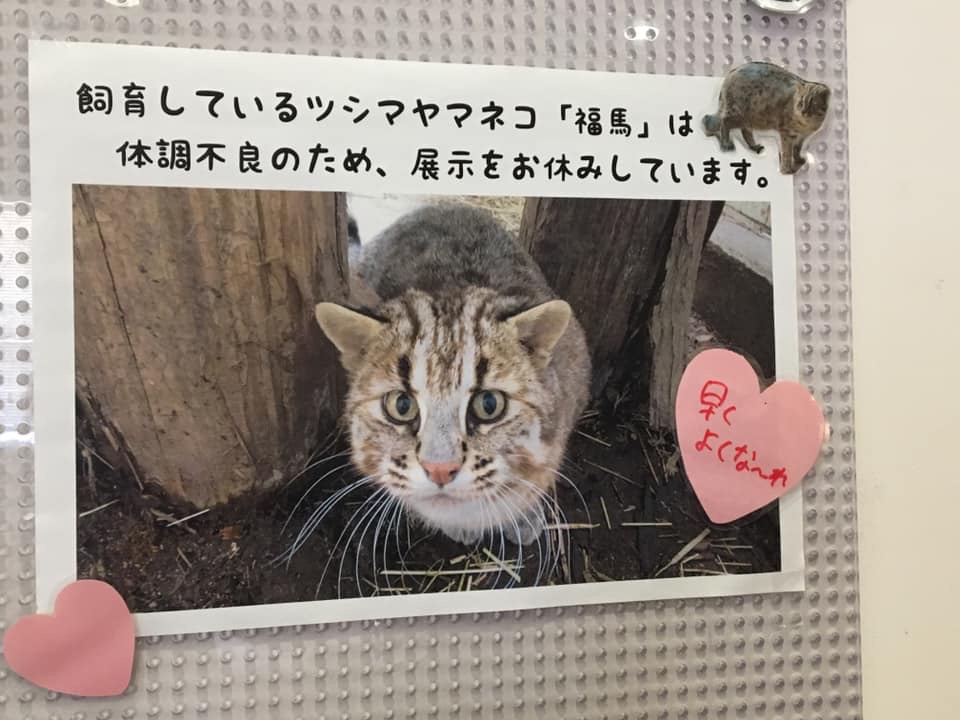 飼育しているツシマヤマネコ「福馬」は
体調不良のため、展示をお休みしています。
早く
よくな〜れ